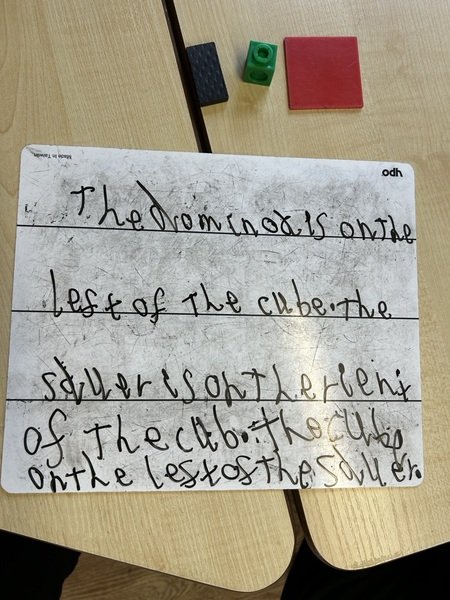 Made in Taiwan
odh
The dominoa is on the
lest of the cube. the
squer is on the rient
of the cub. the cube
on the lest of the squer.